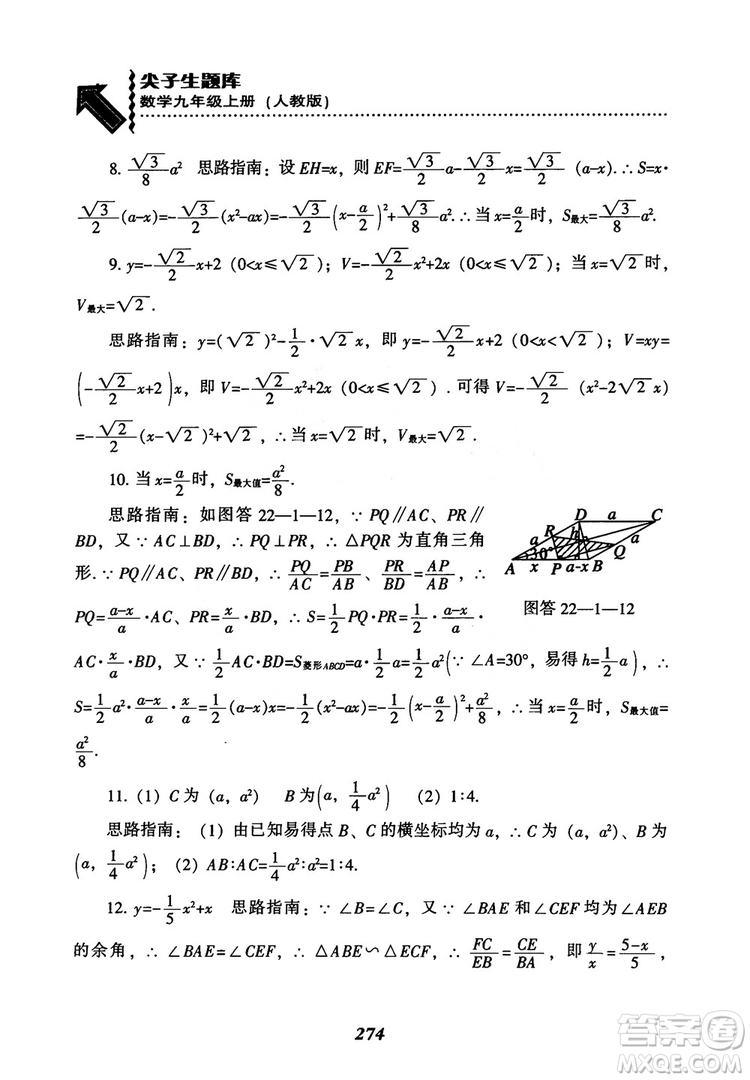 尖子生题库
数学九年级上册 (人教版)
8. √3/8 a² 思路指南：设 EH=x，则 EF=√3/2 a-√3/2 x=√3/2 (a-x).∴S=x·
√3/2 (a-x)=-√3/2 (x²-ax)=-√3/2 (x-a/2)²+√3/8 a².∴当 x=a/2 时，S最大=√3/8 a².
9. y=-√2/2 x+2 (0<x≤√2)；V=-√2/2 x²+2x (0<x≤√2)；当 x=√2 时，
V最大=√2.
思路指南：y=(√2)²-1/2·√2 x，即 y=-√2/2 x+2 (0<x<√2)；V=xy=
(-√2/2 x+2)x，即 V=-√2/2 x²+2x (0<x≤√2).可得 V=-√2/2 (x²-2√2 x)
=-√2/2 (x-√2)²+√2，∴当 x=√2 时，V最大=√2.
10. 当 x=a/2 时，S最大值=a²/8.
思路指南：如图答 22—1—12，∵PQ∥AC、PR∥
BD，又∵AC⊥BD，∴PQ⊥PR，∴△PQR 为直角三角
形.∵PQ∥AC、PR∥BD，∴PQ/AC=PB/AB、PR/BD=AP/AB，∴
PQ=a-x/a·AC、PR=x/a·BD，∴S=1/2 PQ·PR=1/2·a-x/a·
D a C
R h a a Q
30°
A x P a-x B
图答 22—1—12
AC·x/a·BD，又∵1/2 AC·BD=S菱形ABCD=a·1/2 a=1/2 a²(∵∠A=30°，易得 h=1/2 a)，∴
S=1/2 a²·a-x/a·x/a=1/2 (a-x)x=-1/2 (x²-ax)=-1/2 (x-a/2)²+a²/8，∴当 x=a/2 时，S最大值=
a²/8.
11. (1) C 为 (a，a²) B 为(a，1/4 a²) (2) 1∶4.
思路指南：(1) 由已知易得点 B、C 的横坐标均为 a，∴C 为 (a，a²)、B 为
(a，1/4 a²)；(2) AB∶AC=1/4 a²∶a²=1∶4.
12. y=-1/5 x²+x 思路指南：∵∠B=∠C，又∵∠BAE 和∠CEF 均为∠AEB
的余角，∴∠BAE=∠CEF，∴△ABE∽△ECF，∴FC/EB=CE/BA，即 y/x=5-x/5，
274
答案圈
MXQE.COM